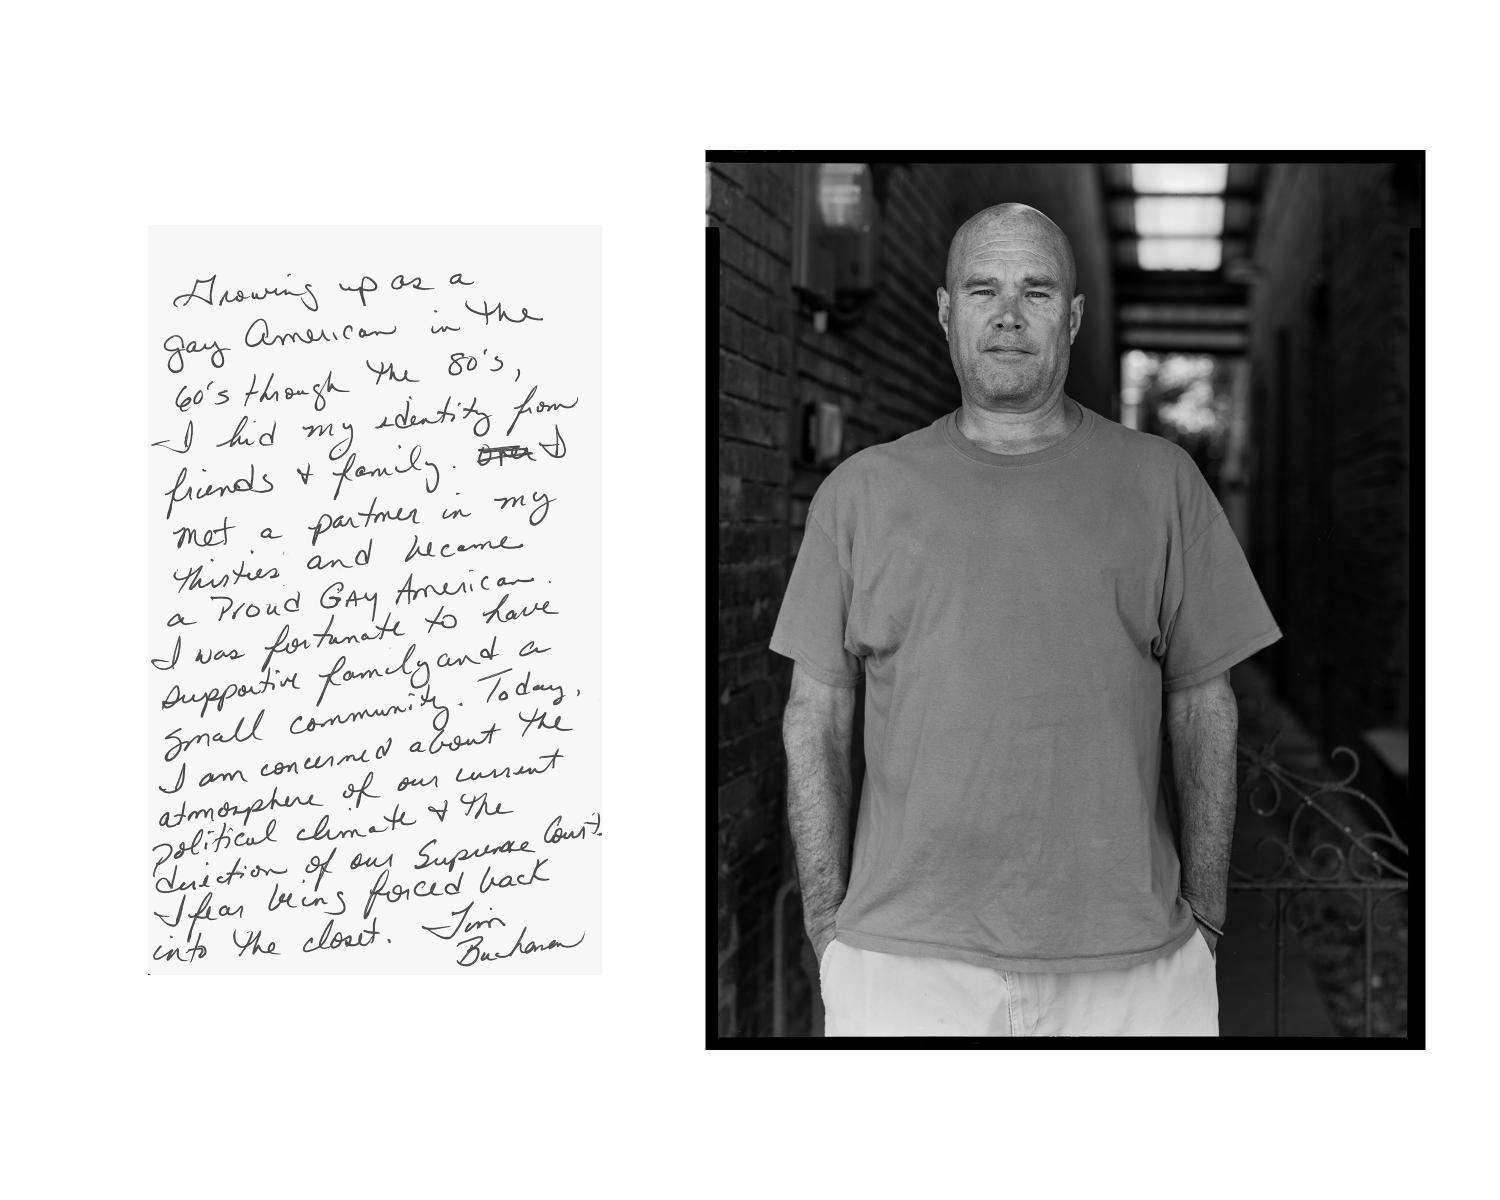 Growing up as a
gay American in the
60's through the 80's,
I hid my identity from
friends & family. I
met a partner in my
thirties and became
a Proud GAy American.
I was fortunate to have
supportive family and a
small community. Today,
I am concerned about the
atmosphere of our current
political climate & the
direction of our Supreme Court.
I fear being forced back
into the closet. Tim
Buchanan